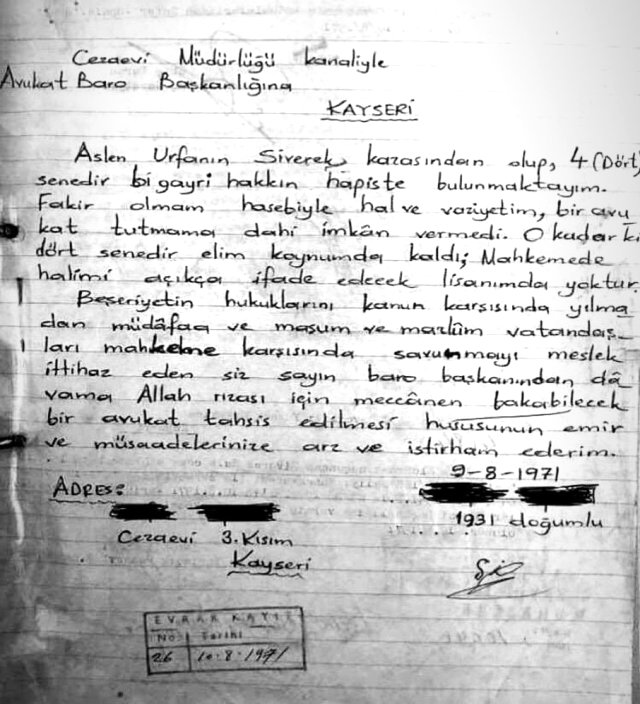 Cezaevi Müdürlüğü kanaliyle
Avukat Baro Başkanlığına
KAYSERİ
Aslen Urfanın Siverek kazasından olup, 4 (Dört)
senedir bigayri hakkın hapiste bulunmaktayım.
Fakir olmam hasebiyle hal ve vaziyetim, bir avu
kat tutmama dahi imkân vermedi. O kadar ki
dört senedir elim koynumda kaldı; Mahkemede
halimi açıkça ifade edecek lisanımda yoktur.
Beşeriyetin hukuklarını kanun karşısında yılma
dan müdâfaa ve masum ve mazlûm vatandaş-
ları mahkeme karşısında savunmayı meslek
ittihaz eden siz sayın baro başkanından dâ
vama Allah rızası için meccânen bakabilecek
bir avukat tahsis edilmesi hususunun emir
ve müsaadelerinize arz ve istirham ederim.
9-8-1971
ADRES:
1931 doğumlu
Cezaevi 3. Kısım
Kayseri
EVRAK KAYIT
No: Tarihi
26 10.8.1971